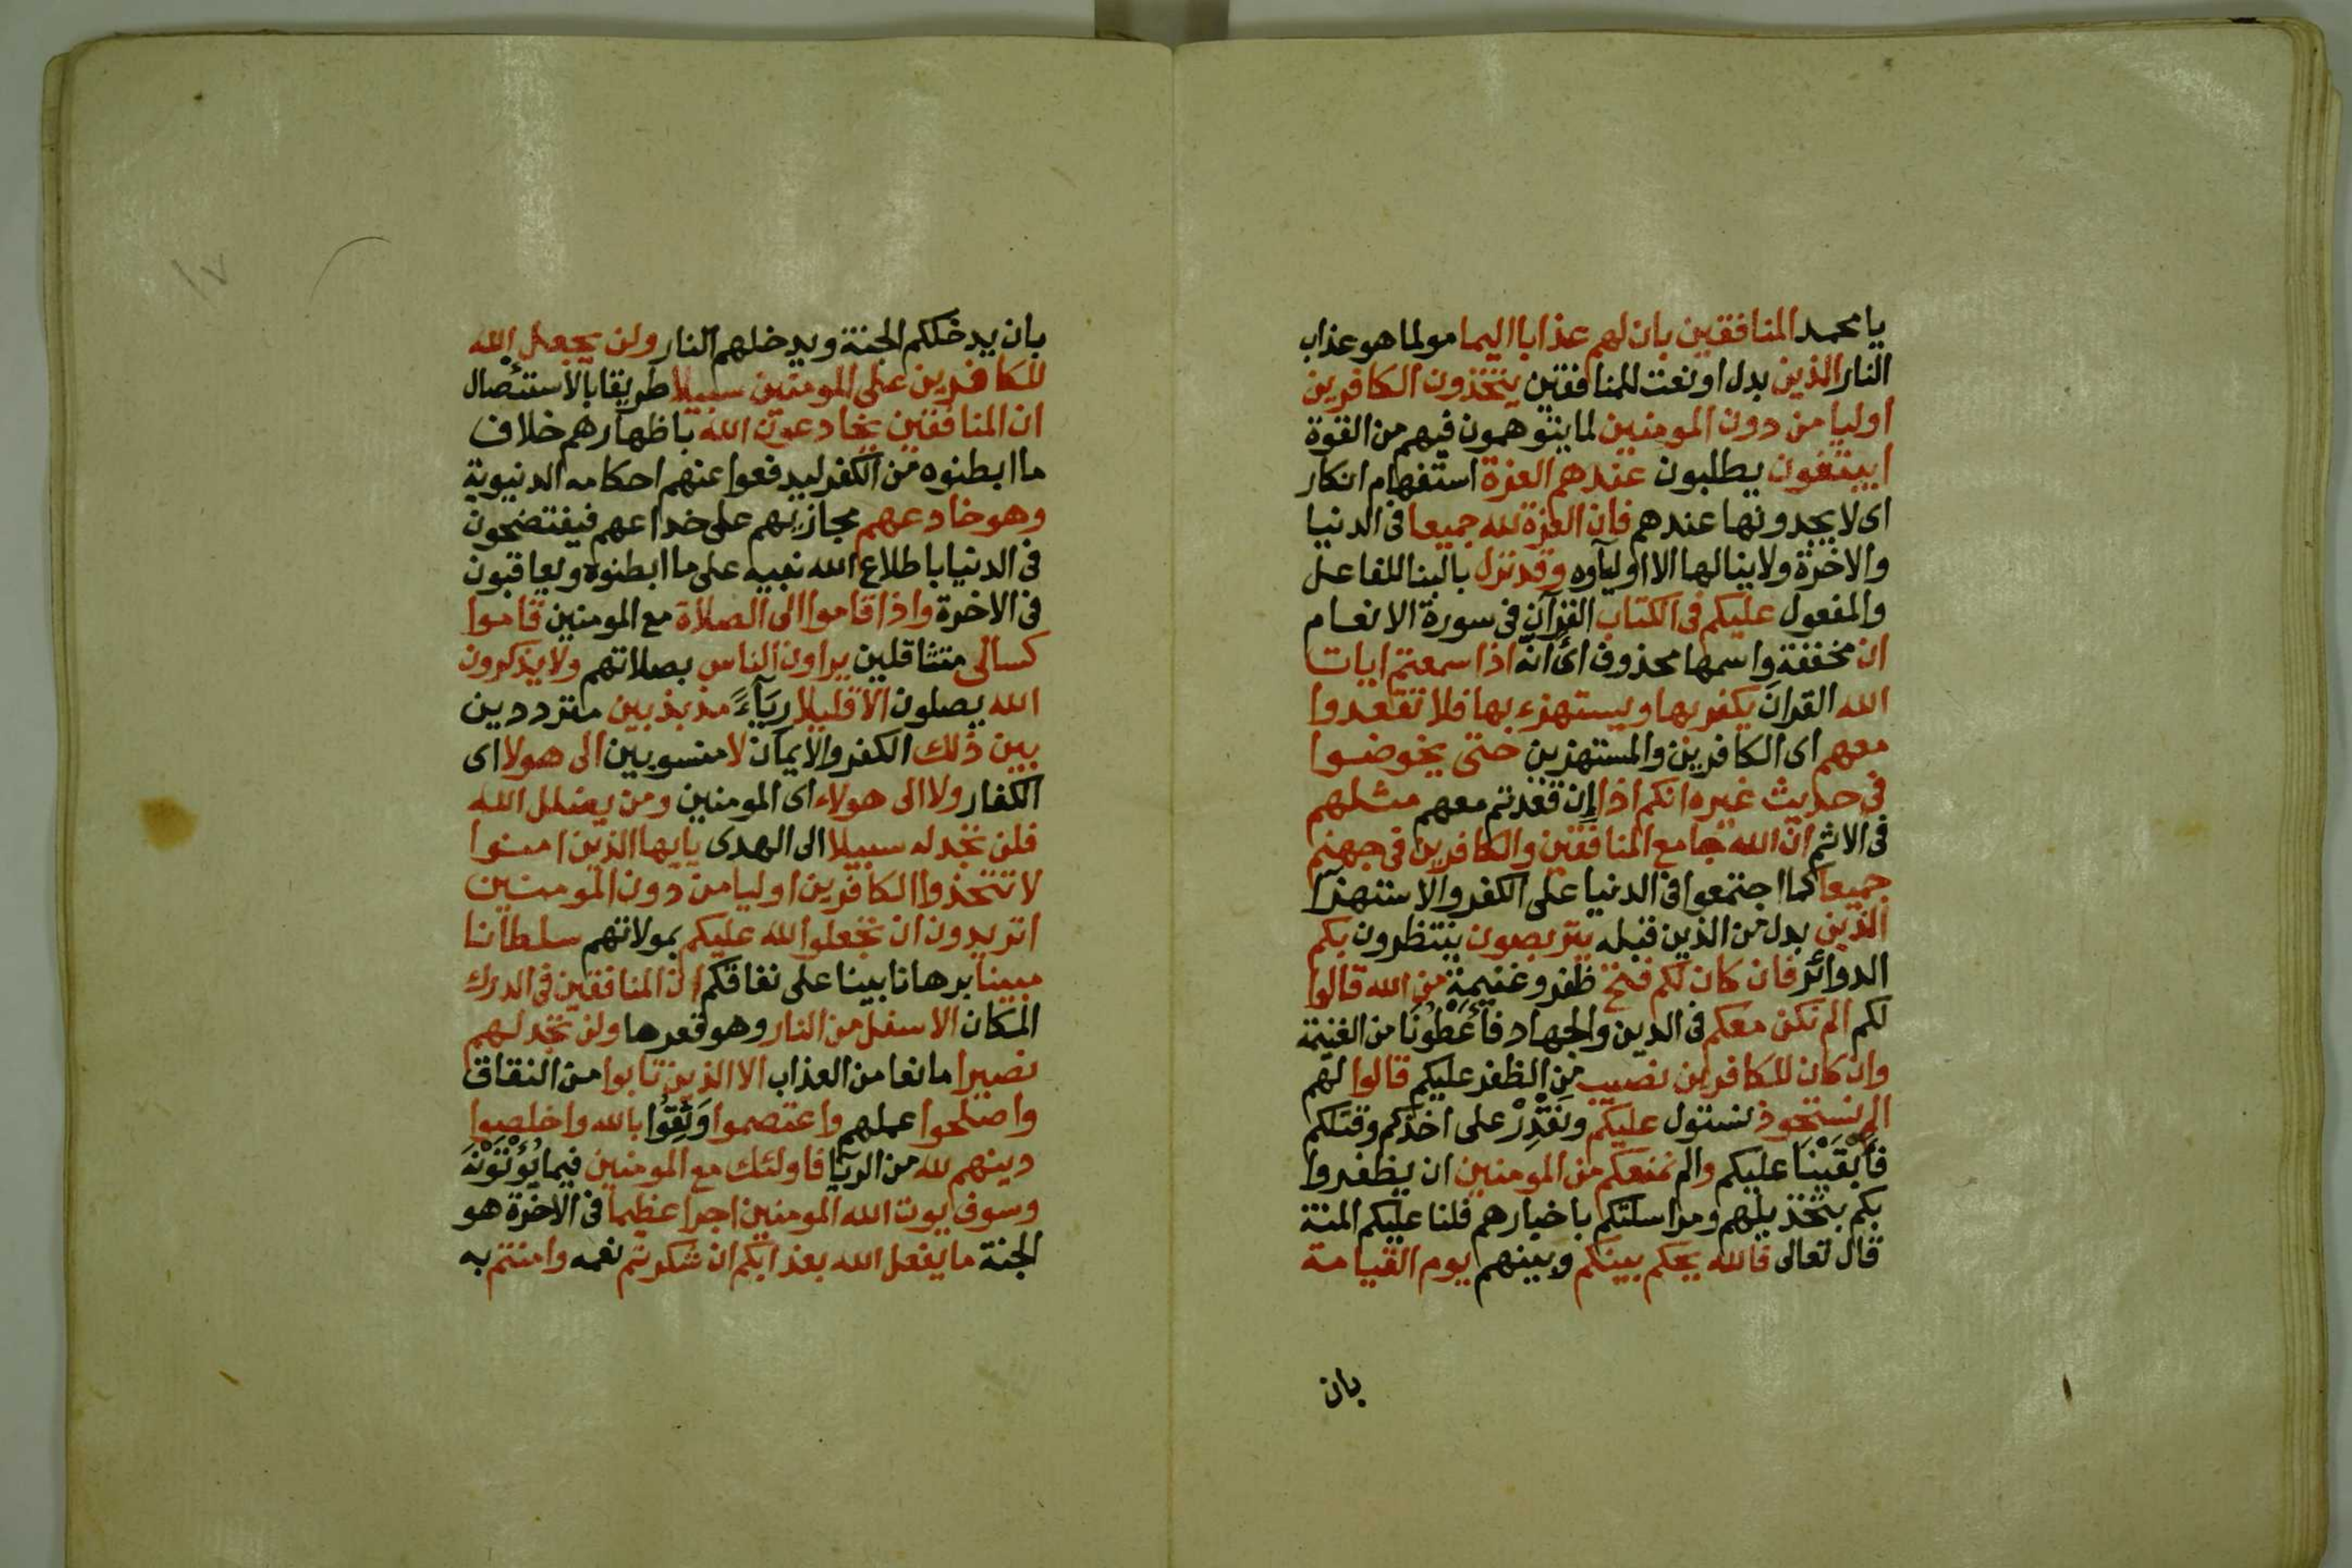 يا محمد المنافقين بان لهم عذابا اليما مولما هو عذاب
النار الذين بدل او نعت للمنافقين يتخذون الكافرين
اوليا من دون المومنين لما يتوهمون فيهم من القوة
ايبتغون يطلبون عندهم العزة استفهام انكار
اى لا يجدونها عندهم فان العزة لله جميعا فى الدنيا
والاخرة ولا ينالها الا اوليآوه وقد نزل بالبنا للفاعل
والمفعول عليكم فى الكتاب القرآن فى سورة الانعام
ان مخففة واسمها محذوف اى انه اذا سمعتم ايات
الله القران يكفر بها ويستهزء بها فلا تقعدوا
معهم اى الكافرين والمستهزين حتى يخوضوا
فى حديث غيره انكم اذا إن قعدتم معهم مثلهم
فى الاثم ان الله جامع المنافقين والكافرين فى جهنم
جميعا كما اجتمعوا فى الدنيا على الكفر والاستهذا
الذين بدل من الذين قبله يتربصون ينتظرون بكم
الدوائر فان كان لكم فتح ظفر وغنيمة من الله قالوا
لكم الم نكن معكم فى الدين والجهاد فأعْطُونَا من الغنيمة
وان كان للكافرين نصيب من الظفر عليكم قالوا لهم
الم نستحوذ نستول عليكم ونَقْدِرْ على اخذكم وقتلكم
فَأَبْقَيْنَا عليكم والم نمنعكم من المومنين ان يظفروا
بكم بتخذيلهم ومراسلتكم باخبارهم فلنا عليكم المنة
قال تعالى فالله يحكم بينكم وبينهم يوم القيامة
بان
١٧
بان يدخلكم الجنة ويدخلهم النار ولن يجعل الله
للكافرين على المومنين سبيلا طريقا بالاستئصال
ان المنافقين يخادعون الله باظهارهم خلاف
ما ابطنوه من الكفر ليدفعوا عنهم احكامه الدنيوية
وهو خادعهم مجازيهم على خداعهم فيفتضحون
فى الدنيا باطلاع الله نبيه على ما ابطنوه ويعاقبون
فى الاخرة واذا قاموا الى الصلاة مع المومنين قاموا
كسالى متثاقلين يراون الناس بصلاتهم ولا يذكرون
الله يصلون الا قليلا ريَآءً مذبذبين مترددين
بين ذلك الكفر والايمان لا منسوبين الى هولا اى
الكفار ولا الى هولاء اى المومنين ومن يضلل الله
فلن تجد له سبيلا الى الهدى يايها الذين امنوا
لا تتخذوا الكافرين اوليا من دون المومنين
اتريدون ان تجعلوا لله عليكم بمولاتهم سلطانا
مبينا برهانا بينا على نفاقكم ان المنافقين فى الدرك
المكان الاسفل من النار وهو قعرها ولن تجد لهم
نصيرا مانعا من العذاب الا الذين تابوا من النفاق
واصلحوا عملهم واعتصموا وَثِقُوا بالله واخلصوا
دينهم لله من الريآ فاولئك مع المومنين فيما يُؤْتَوْنَهُ
وسوف يوت الله المومنين اجرا عظيما فى الاخرة هو
الجنة ما يفعل الله بعذابكم ان شكرتم نعمه وامنتم به